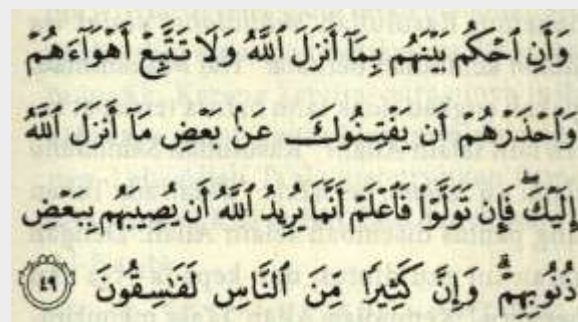 وَأَنِ ٱحْكُم بَيْنَهُم بِمَآ أَنزَلَ ٱللَّهُ وَلَا تَتَّبِعْ أَهْوَآءَهُمْ
وَٱحْذَرْهُمْ أَن يَفْتِنُوكَ عَنۢ بَعْضِ مَآ أَنزَلَ ٱللَّهُ
إِلَيْكَ ۖ فَإِن تَوَلَّوْا۟ فَٱعْلَمْ أَنَّمَا يُرِيدُ ٱللَّهُ أَن يُصِيبَهُم بِبَعْضِ
ذُنُوبِهِمْ ۗ وَإِنَّ كَثِيرًا مِّنَ ٱلنَّاسِ لَفَـٰسِقُونَ ٤٩